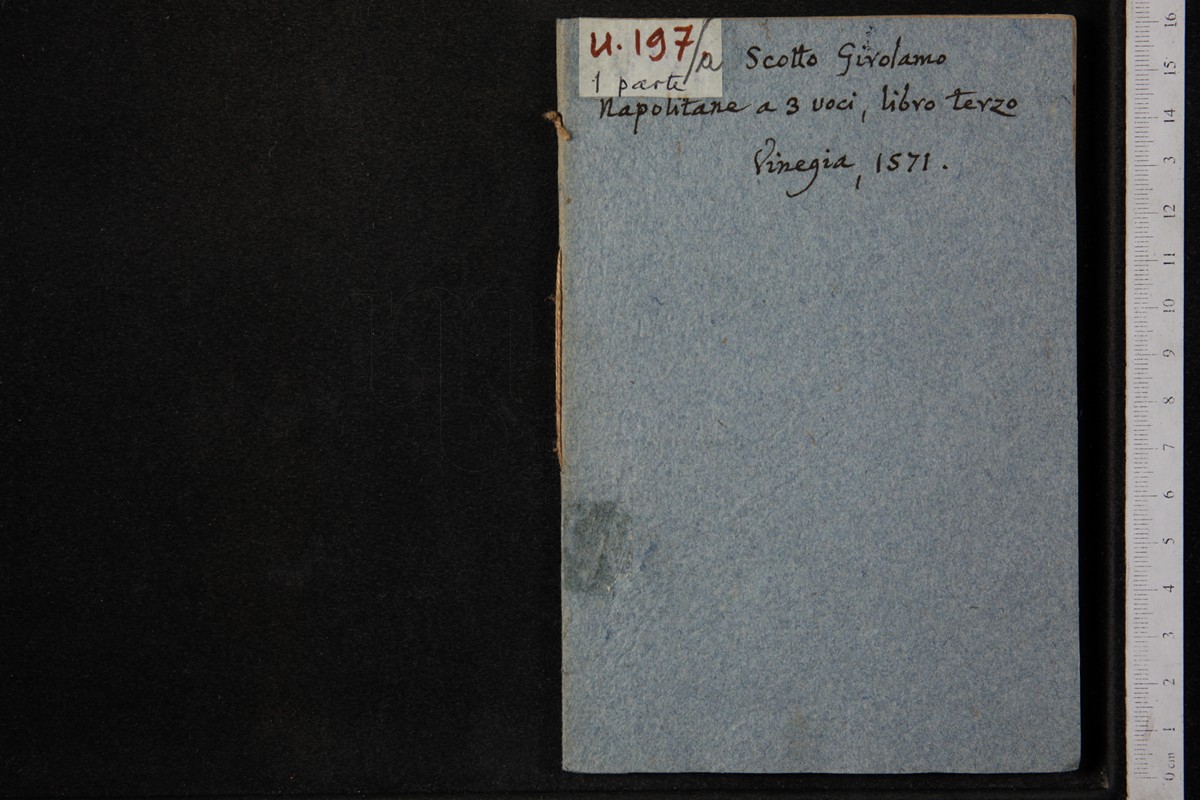 U.197/a
1 parte
Scotto Girolamo
Napolitane a 3 voci, libro terzo
Vinegia, 1571.
16
15
14
3
12
11
10
9
8
7
6
5
4
3
2
1
0 cm